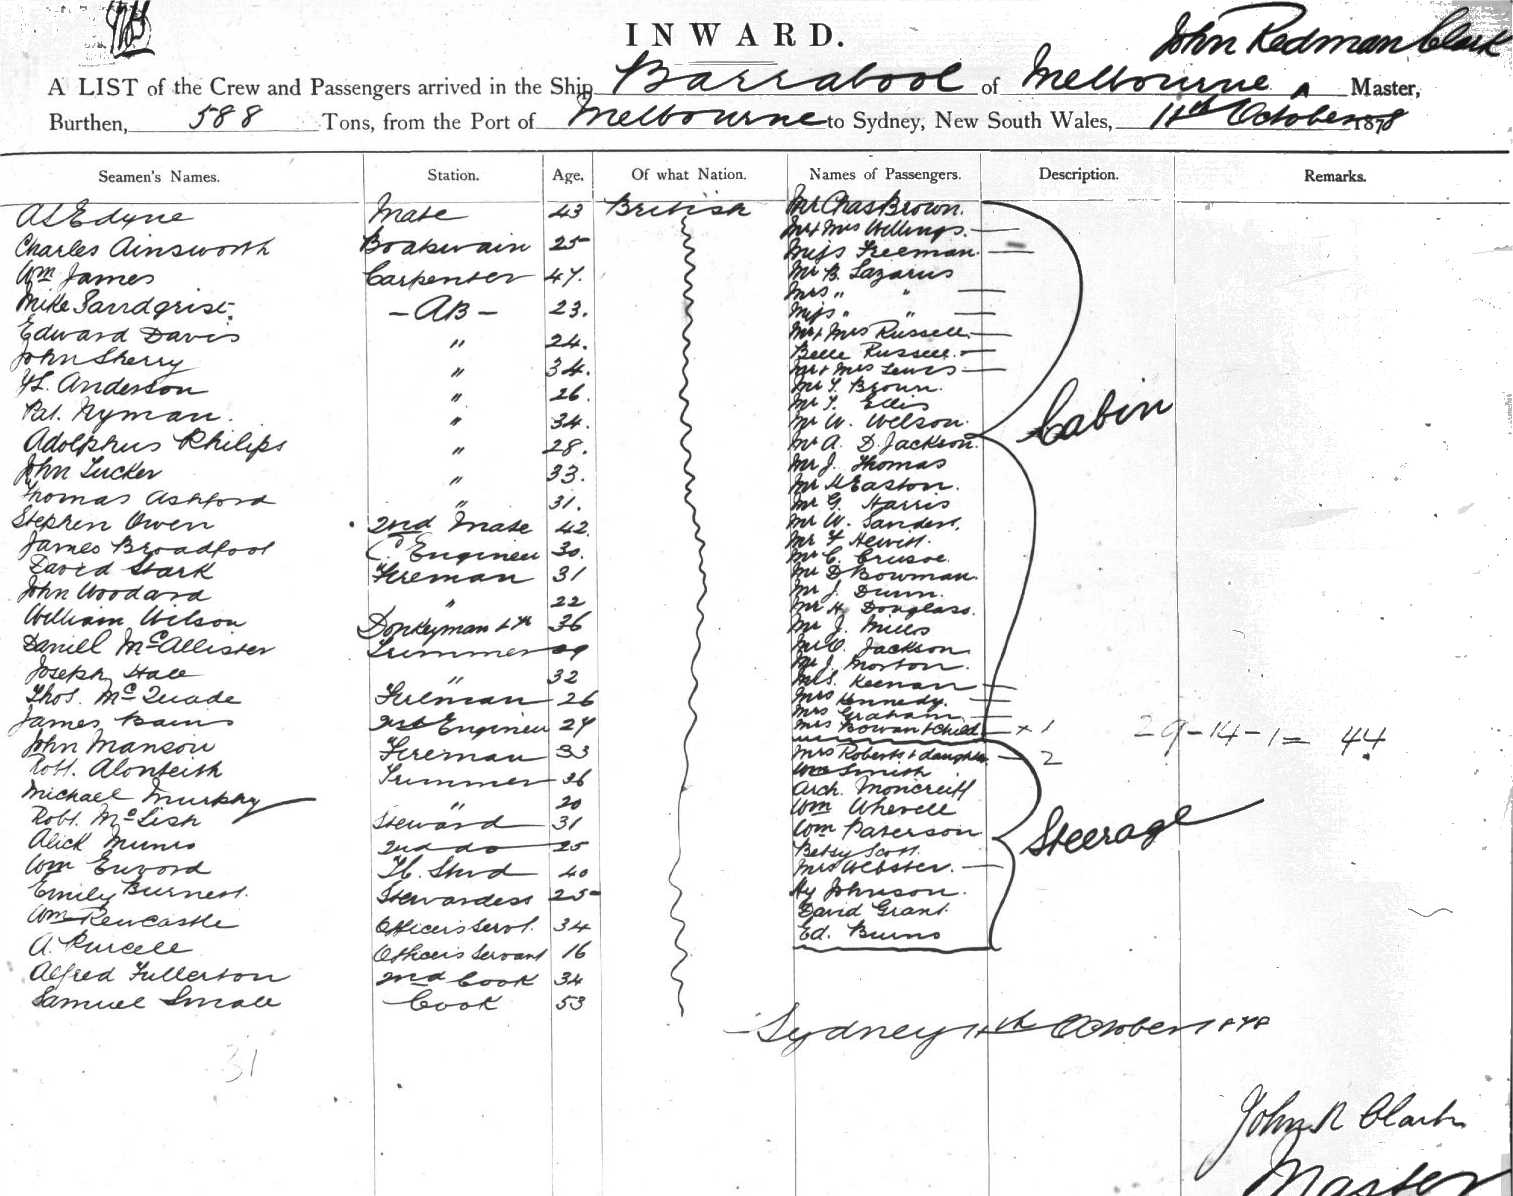 INWARD.
John Redman Clark
A LIST of the Crew and Passengers arrived in the Ship Barrabool of Melbourne Master,
Burthen, 588 Tons, from the Port of Melbourne to Sydney, New South Wales, 11th October 1878
Seamen's Names. Station. Age. Of what Nation. Names of Passengers. Description. Remarks.
Mate 43 British Mr Chas Brown.
Charles Ainsworth Boatswain 25 Mr & Mrs Willings
Wm James Carpenter 47. Miss Freeman
Mike Sandqrist. - AB - 23. Mr B. Lazarus
Edward Davis " 24. Mrs " "
John Sherry " 34. Miss " "
Anderson " 26. Mr & Mrs Russell
Pat. Nyman. " 34. Belle Russell
Adolphus Philips " 28. Mr & Mrs Lewis
John Tucker " 33. Mr T. Brown.
Thomas Ashford " 31. Mr T. Ellis
Stephen Owen 2nd Mate 42. Mr W. Wilson.
James Broadfoot C. Engineer 30. Mr A. D. Jackson.
David Stark Fireman 31 Mr J. Thomas
John Woodard " 22 Mr H Easton.
William Wilson Donkeyman 36 Mr G. Harris
Daniell McAllister Trimmer Mr W. Sanders.
Joseph Hall " 32 Mr F Hewitt.
Thos. McQuade Fireman 26 Mr C. Crusoe
James Bain 2nd Engineer 27 Mr D. Bowman.
John Manson Fireman 33 Mr J. Dunn.
Robt. Trimmer 26 Mr H. Douglass.
Michael Murphy " 20 Mr J. Mills
Robt. McLish Steward 31 Jackson
Alick Munro 2nd do 25 Mr J. Morton.
Wm 40 Mrs Keenan
Emily Burnett. Stewardess 25 Mrs Kennedy.
Wm Rewcastle Officers Servt. 34 Mrs Graham
A. Purcell Officers Servant 16 Mrs Bowan & Child + 1
Alfred Fullerton 2nd Cook 34
Samuel Small Cook 53
Cabin
29-14-1= 44
Mrs Roberts & daughter 2
Wm Smith
Arch. Moncreiff
Wm Whevell
Wm Paterson
Betsy Scott.
Mrs Webster.
Hy Johnson.
David Grant.
Ed. Burns
Steerage
Sydney 11th October 1878
31
John R Clark
Master